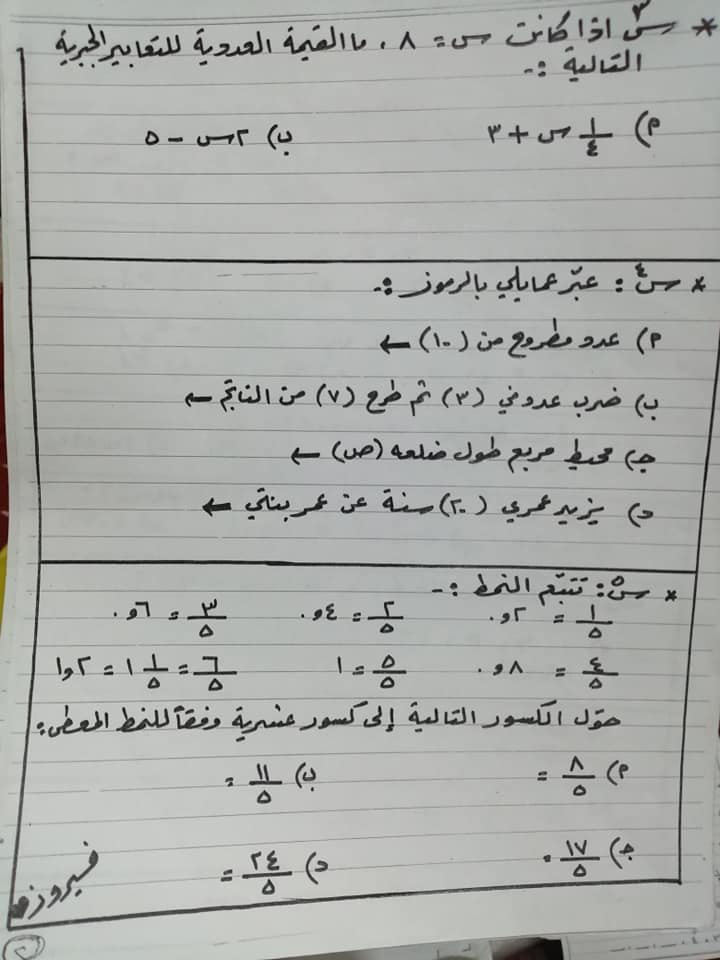 * س٣ اذا كانت س = ٨ ، ما القيمة العددية للتعابير الجبرية
التالية :-
أ) ١/٤ س + ٣ ب) ٢س - ٥
* س٤ : عبّر عمايلي بالرموز :-
أ) عدد مطروح من (١٠) ←
ب) ضرب عدد في (٣) ثم طرح (٧) من الناتج ←
ج) محيط مربع طول ضلعه (ص) ←
د) يزيد عمري (٢٠) سنة عن عمر بنتي ←
* س٥ : تتبّع النمط :-
١/٥ = ٢و٠ ٢/٥ = ٤و٠ ٣/٥ = ٦و٠
٤/٥ = ٨و٠ ٥/٥ = ١ ٦/٥ = ١ ١/٥ = ٢و١
حوّل الكسور التالية إلى كسور عشرية وفقاً للنمط المعطى :
أ) ٨/٥ = ب) ١١/٥ =
ج) ١٧/٥ = د) ٢٤/٥ =
فيروز
٢